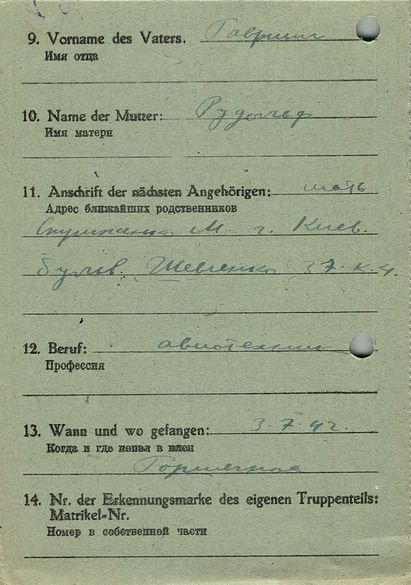 9. Vorname des Vaters. Гавриил
Имя отца
10. Name der Mutter: Рудольф
Имя матери
11. Anschrift der nächsten Angehörigen: мать
Адрес ближайших родственников
М. г. Киев.
бульв. Шевченко 37. к. 4.
12. Beruf: авиотехник
Профессия
13. Wann und wo gefangen: 3.7.42.
Когда и где попал в плен
Горшечное
14. Nr. der Erkennungsmarke des eigenen Truppenteils:
Matrikel-Nr.
Номер в собственной части